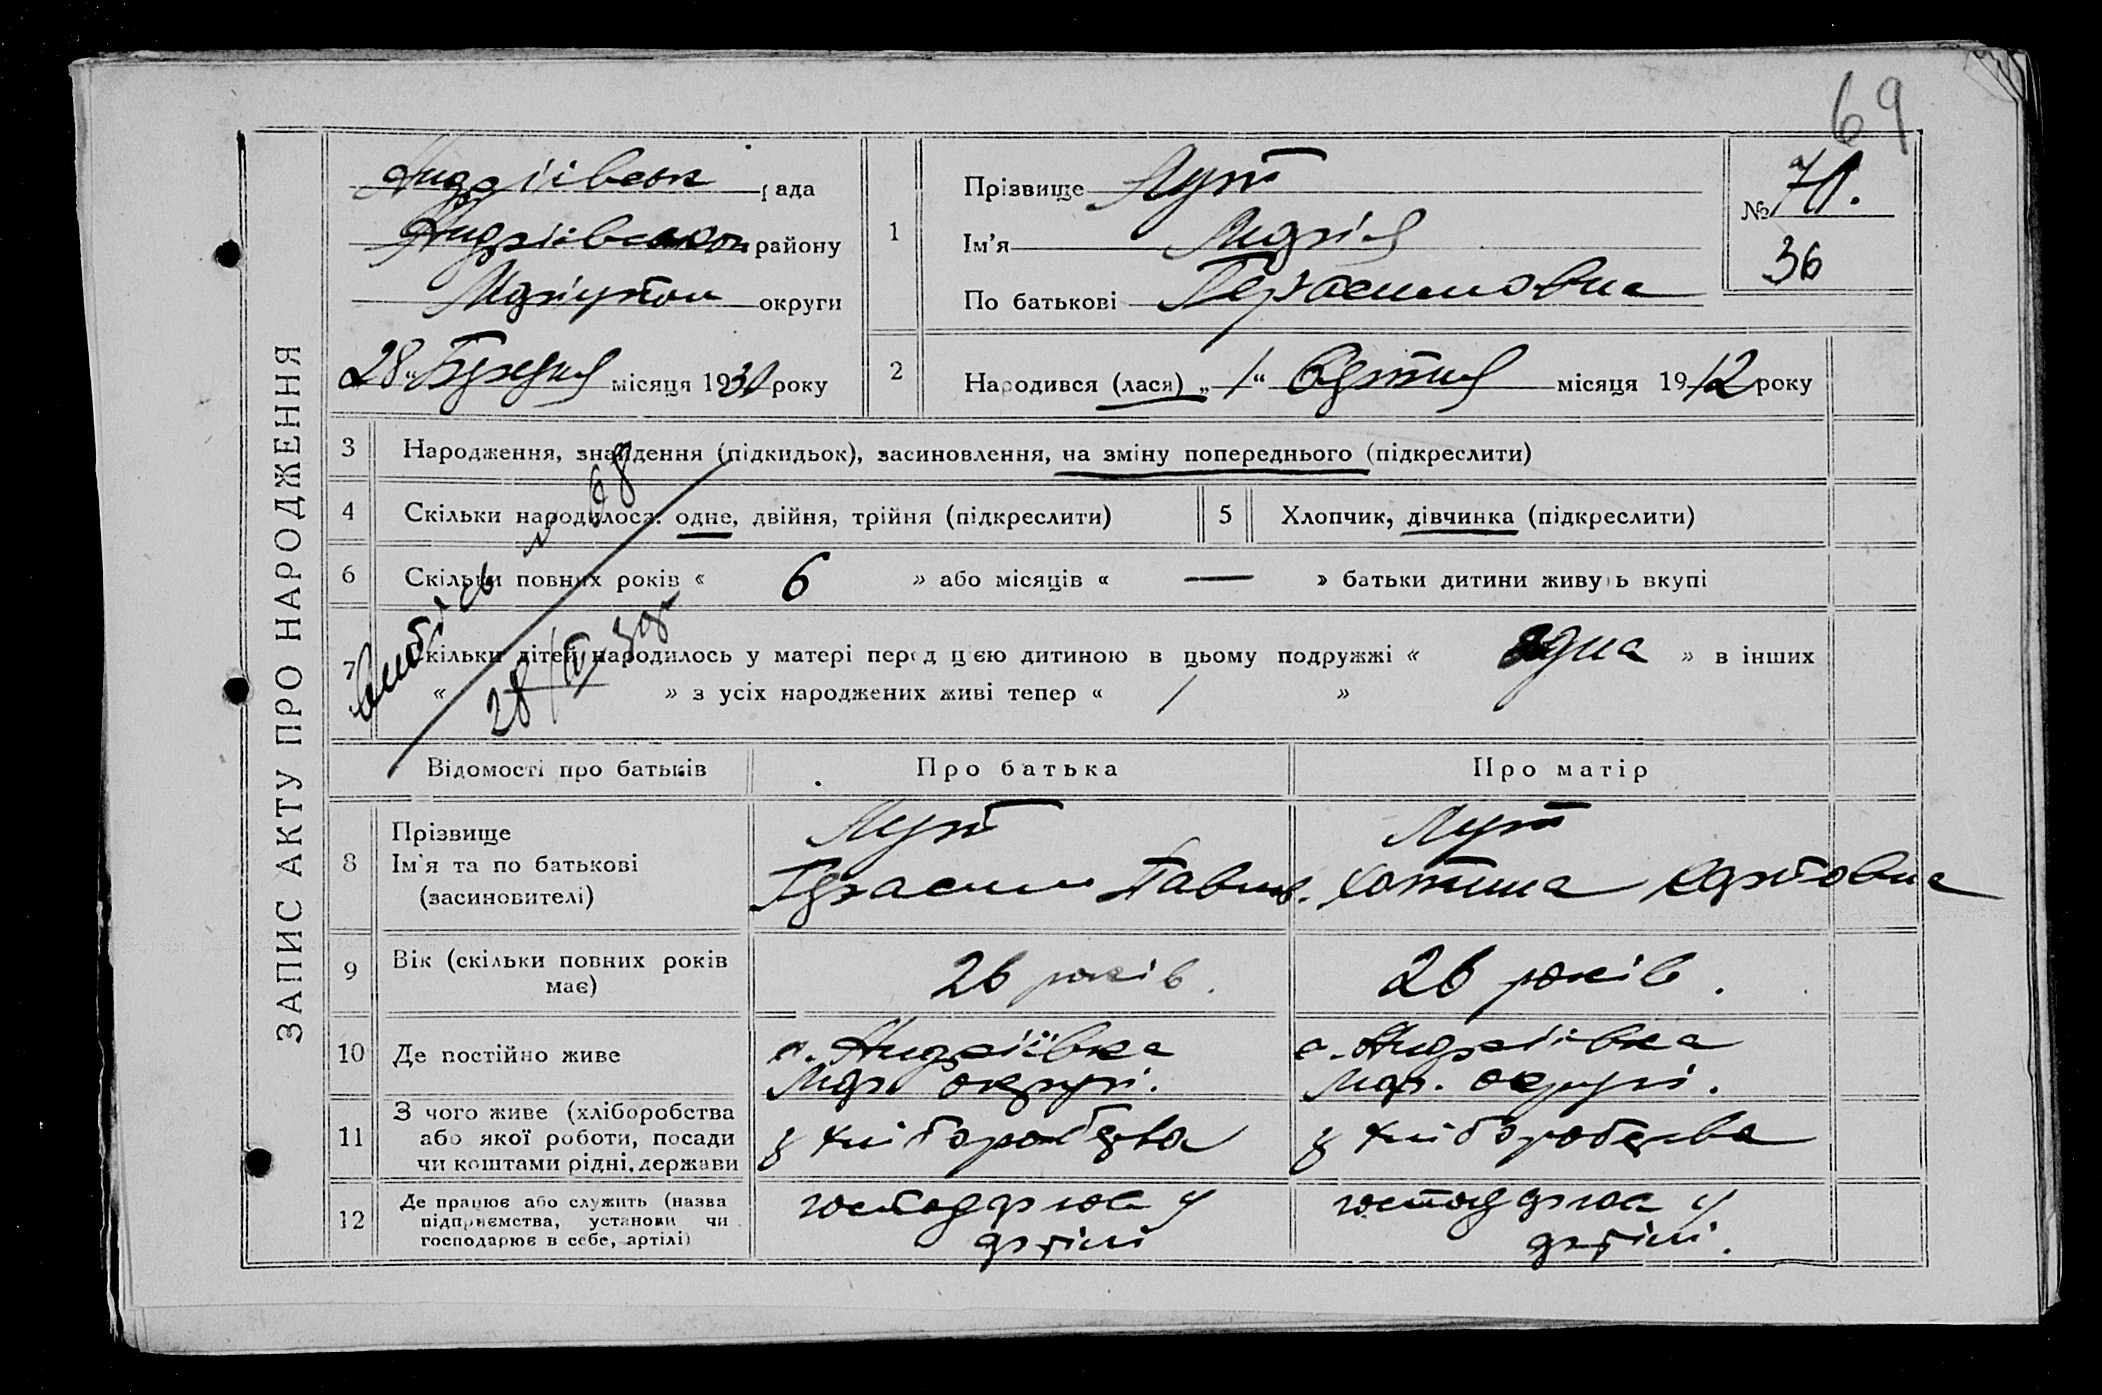 69
ЗАПИС АКТУ ПРО НАРОДЖЕННЯ
Андріївськ рада
Андріївського району
Маріупол округи
28 " Березня місяця 1930 року
1
Прізвище Лут
Ім'я Марія
По батькові Герасимовна
№ 71.
36
2
Народився (лася) „ 1 “ місяця 1912 року
3 Народження, знайдення (підкидьок), засиновлення, на зміну попереднього (підкреслити)
4 Скільки народилося: одне, двійня, трійня (підкреслити)
5 Хлопчик, дівчинка (підкреслити)
6 Скільки повних років « 6 » або місяців « — » батьки дитини живуть вкупі
7 Скільки дітей народилось у матері перед цією дитиною в цьому подружжі « одна » в інших
« » з усіх народжених живі тепер « 1 »
№ 68
28/III 30р
Відомості про батьків
Про батька
Про матір
8 Прізвище
Ім'я та по батькові
(засиновителі)
Лут
Герасим Павлов.
Лут
Карповна
9 Вік (скільки повних років
має)
26 років.
26 років.
10 Де постійно живе
с. Андріївка
Мар. округі.
с. Андріївка
Мар. округі.
11 З чого живе (хліборобства
або якої роботи, посади
чи коштами рідні, держави
з хліборобства
з хліборобства
12 Де працює або служить (назва
підприємства, установи чи
господарює в себе, артілі)
господарює у
артілі
господарює у
артілі.